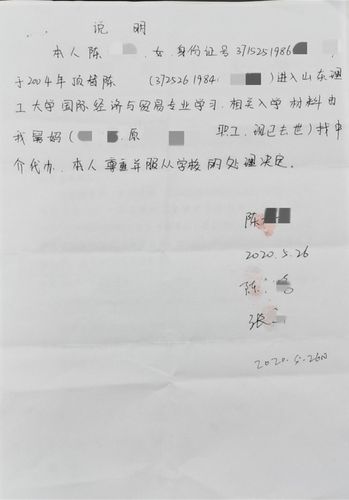 说 明
本人陈 ,女,身份证号3715251986 ,
于2004年顶替陈 (372526 1984 )进入山东理
工大学国际经济与贸易专业学习,相关入学材料由
我舅妈( ,原 职工,现已去世)找中
介代办,本人尊重并服从学校的处理决定。
陈
2020.5.26
陈
张
2020.5.26日